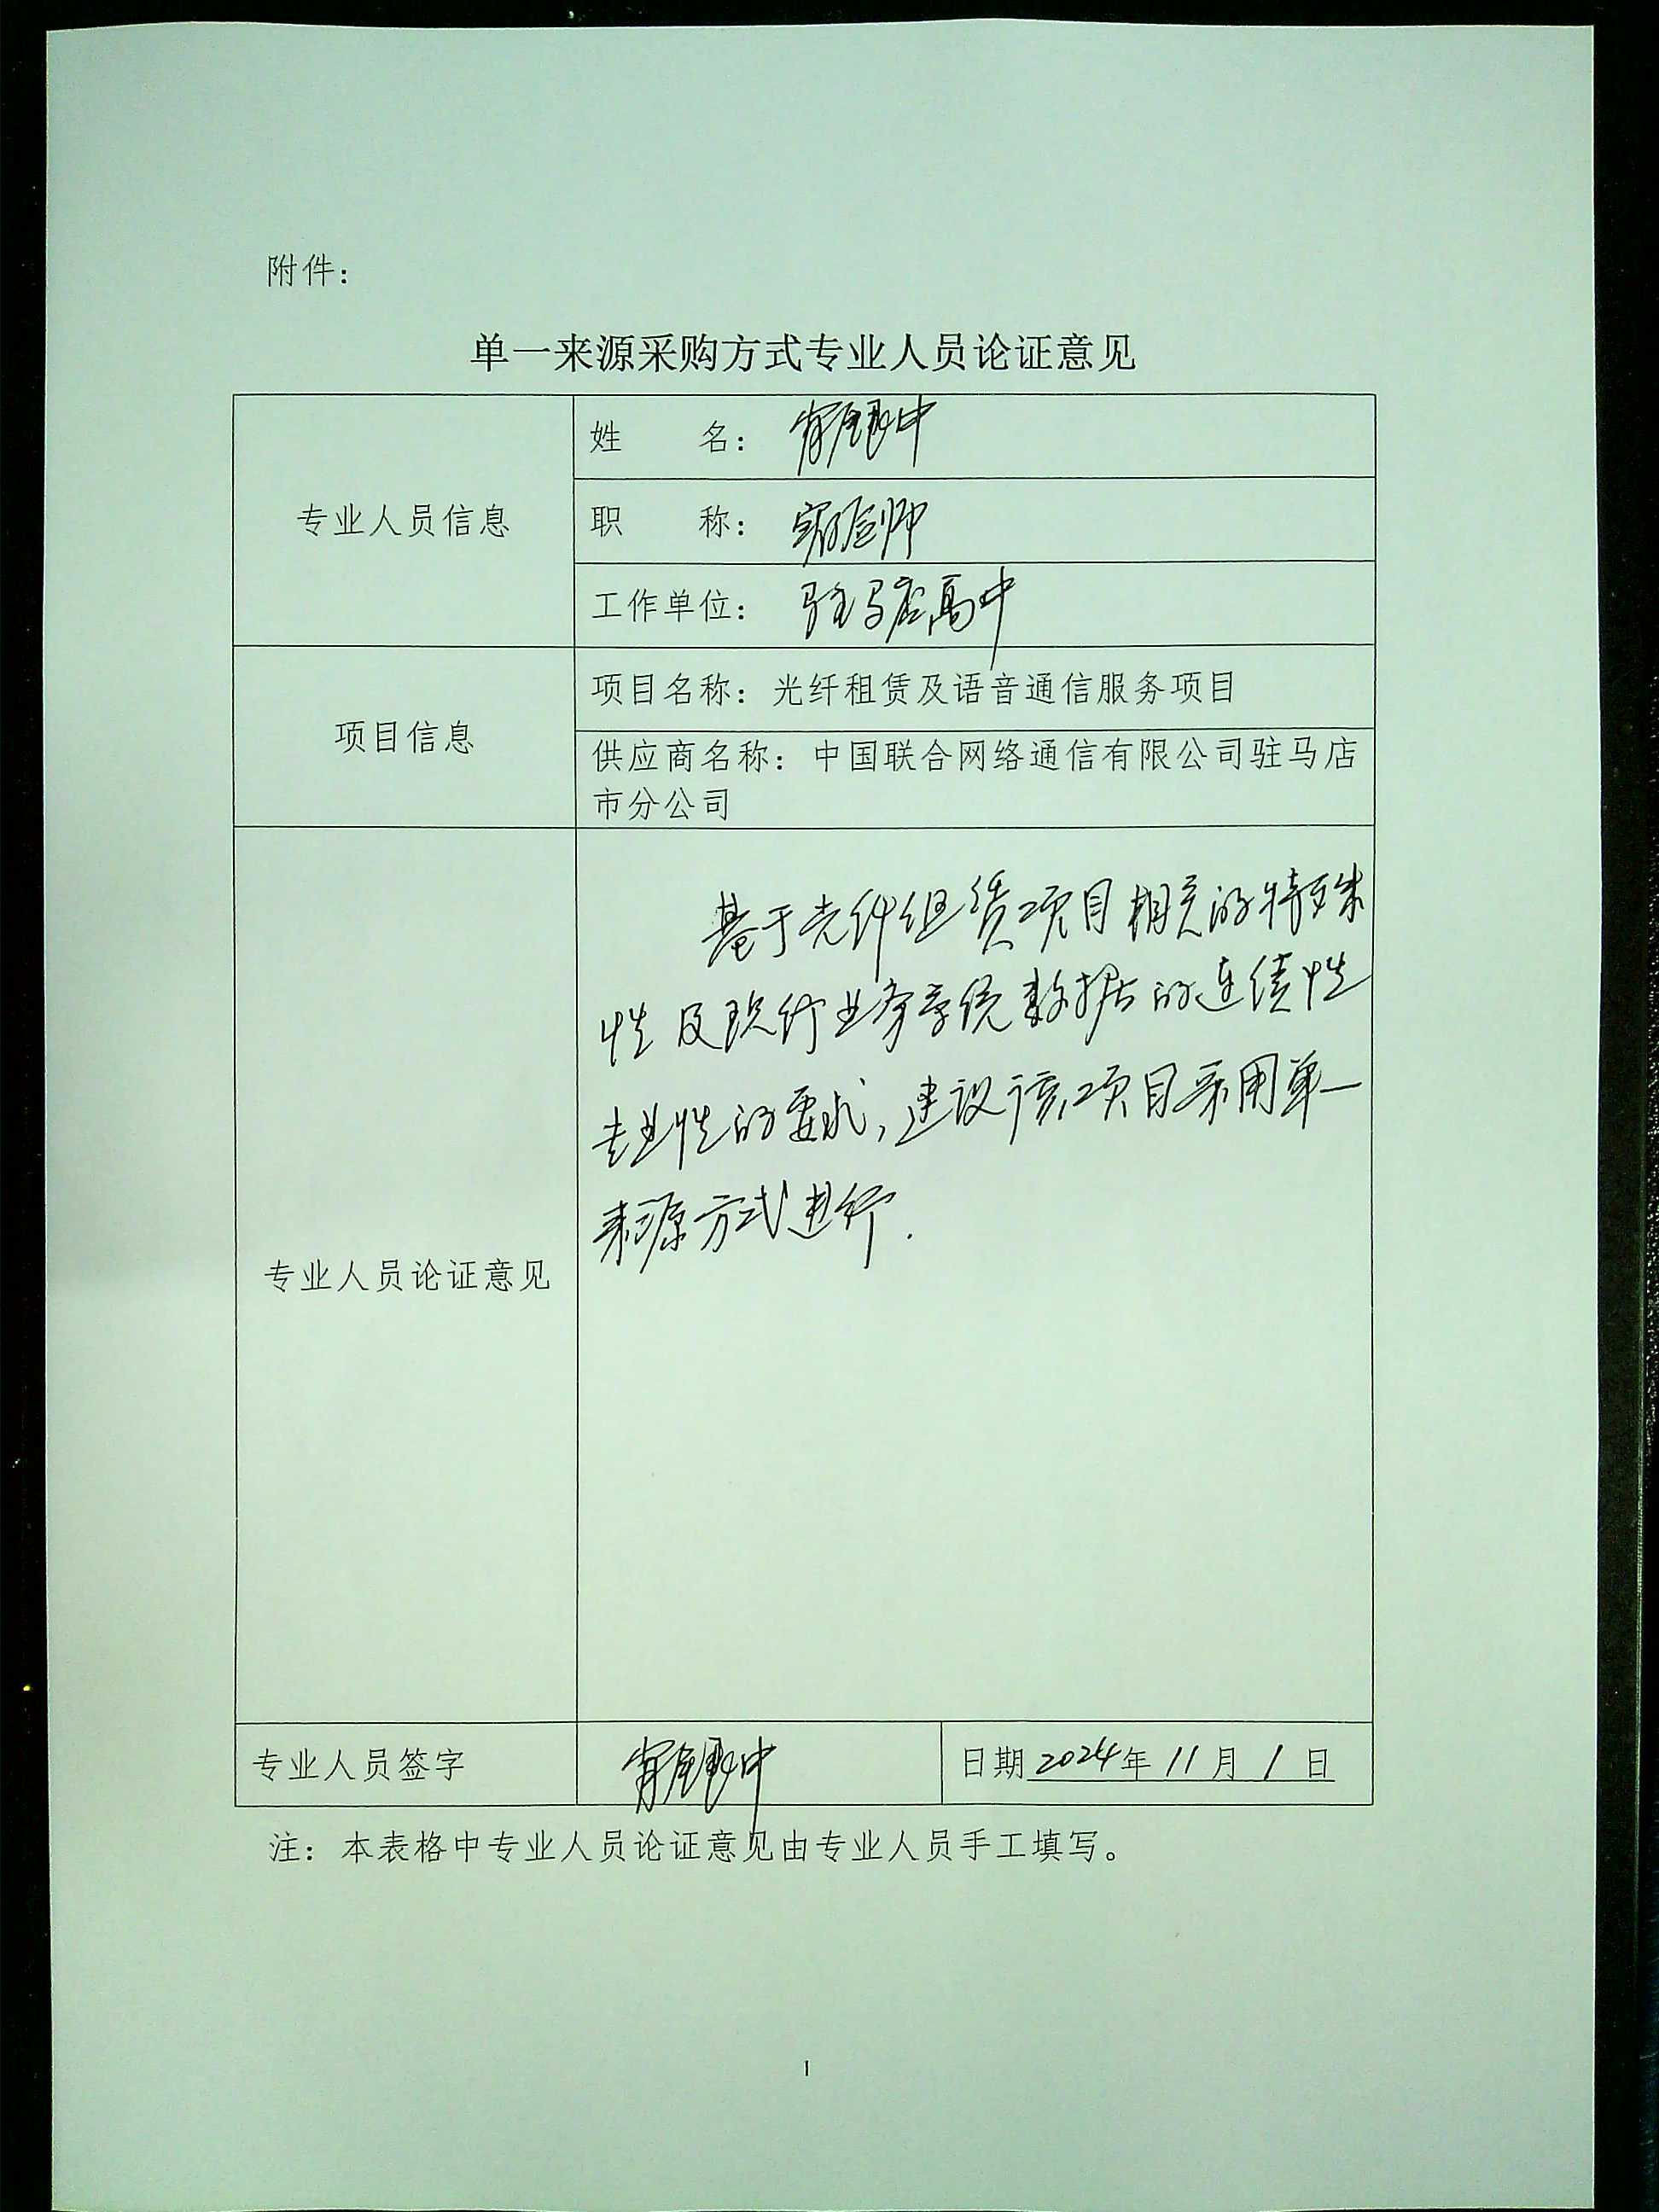 附件：
单一来源采购方式专业人员论证意见
专业人员信息
姓 名：
职 称：实验师
工作单位：驻马店高中
项目信息
项目名称：光纤租赁及语音通信服务项目
供应商名称：中国联合网络通信有限公司驻马店
市分公司
专业人员论证意见
基于光纤组赁项目相关的特殊
性及现行业务系统数据的连续性
专业性的要求，建议该项目采用单一
来源方式进行.
专业人员签字
日期2024年11月1日
注：本表格中专业人员论证意见由专业人员手工填写。
1